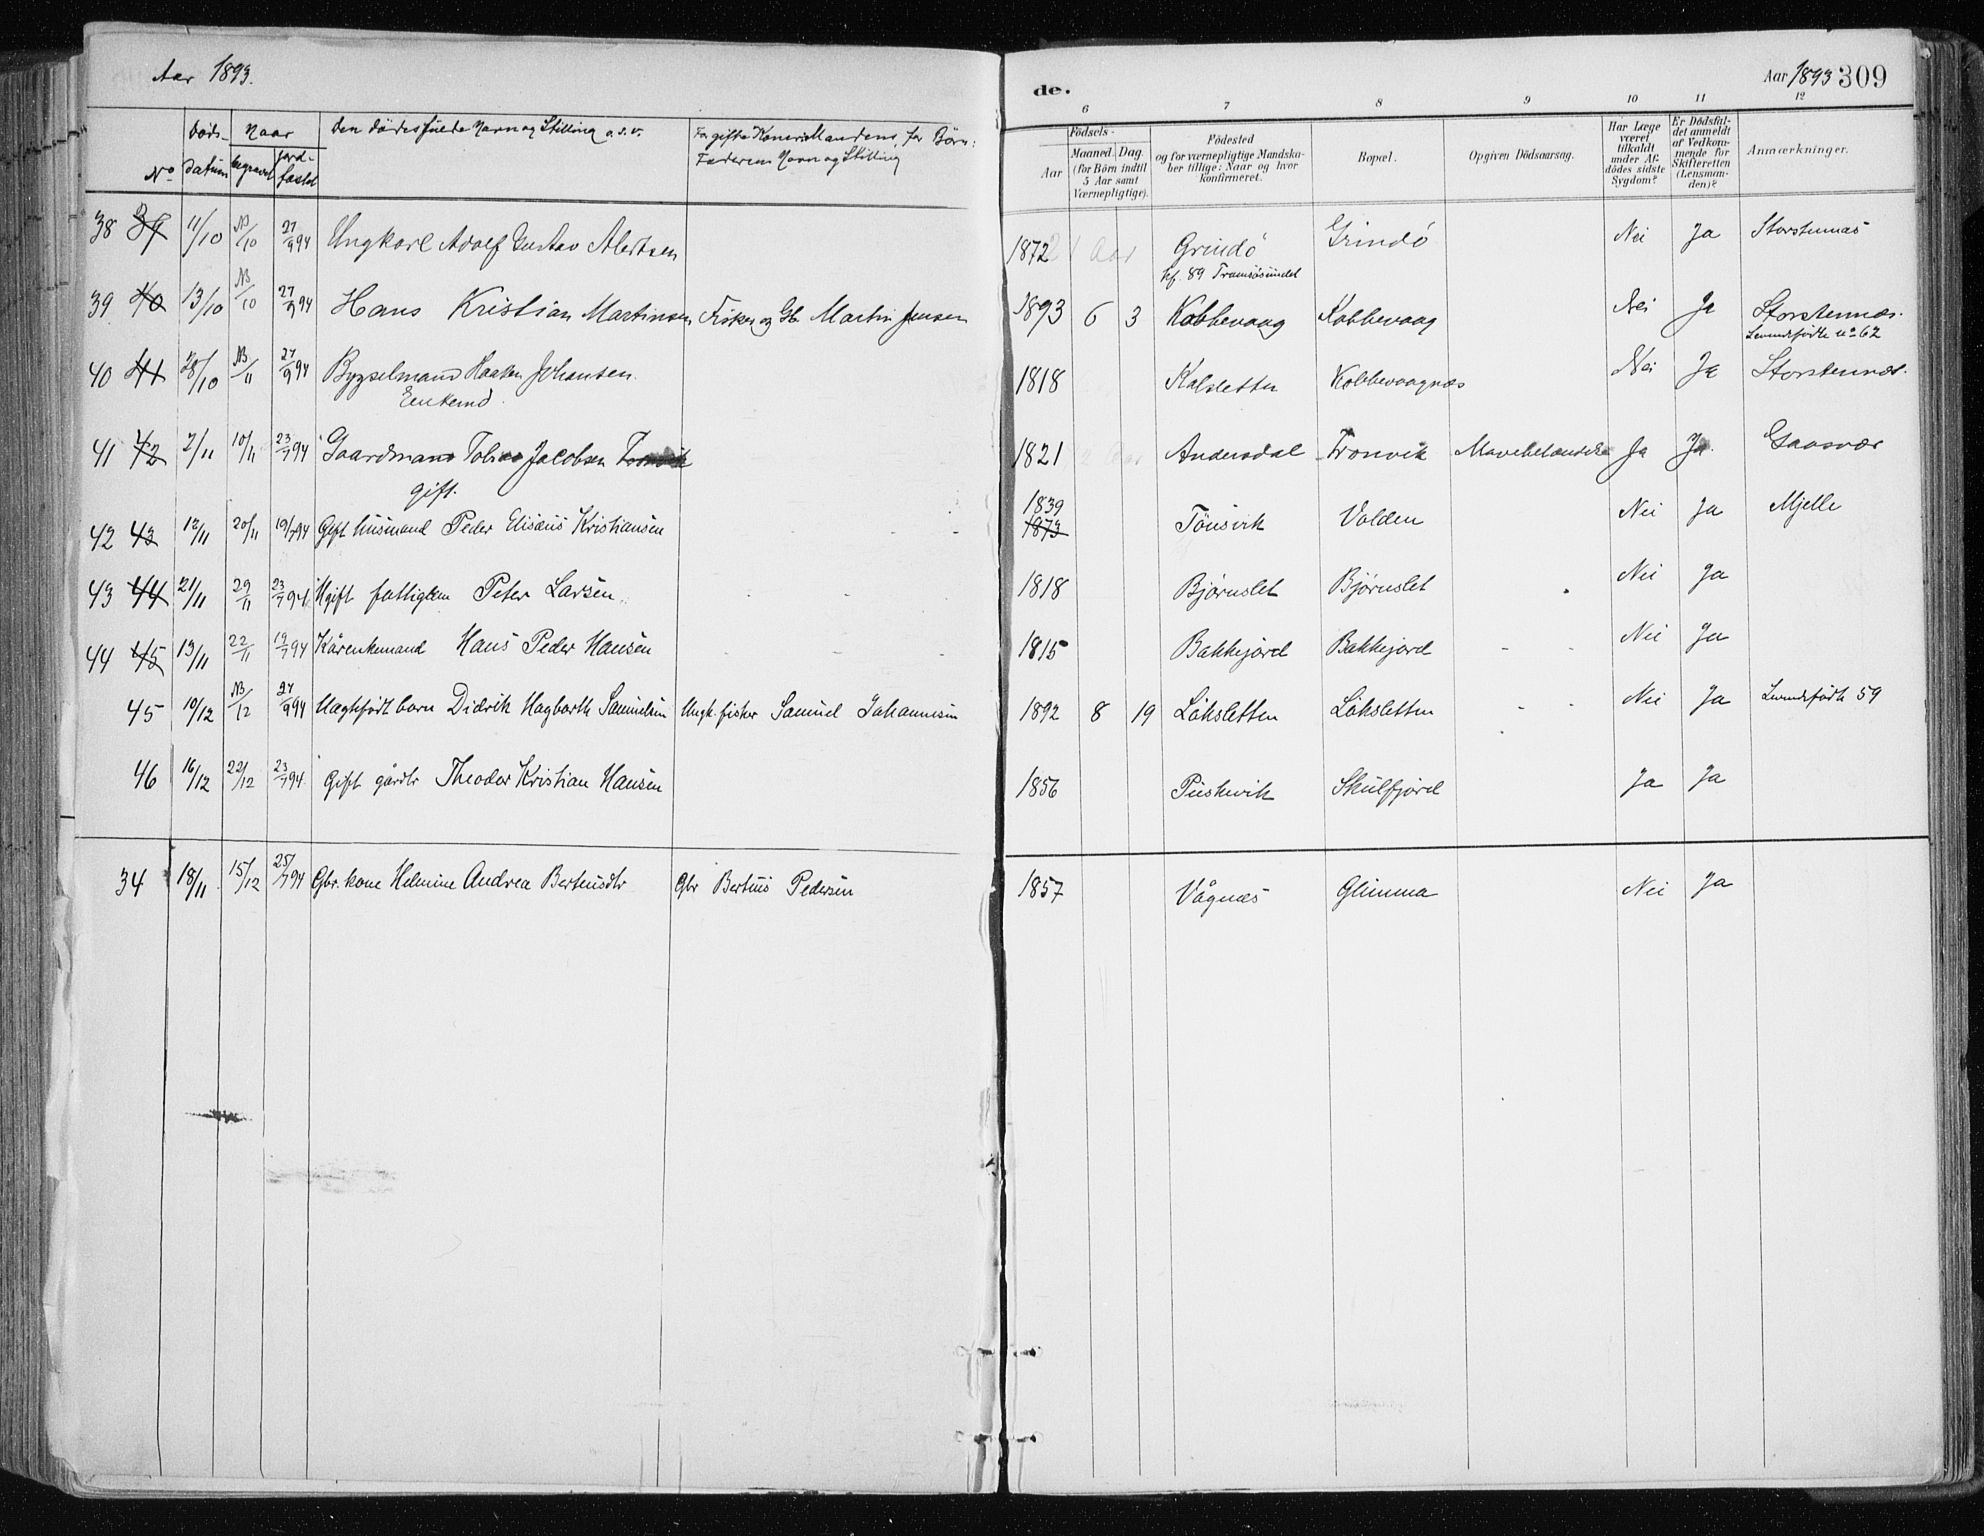 Aar 1893.
de.
Aar 1893 309
6 7 8 9 10 11 12
No
Døds-
datum
Naar
begravet
jord-
fæstet
Den dødes fulde Navn og Stilling o.s.v.
For gifte Koner: Mandens, for Børn:
Faderens Navn og Stilling
Fødsels-
Aar
Maaned. Dag
(for Børn indtil
5 Aar samt
Værnepligtige).
Födested
og for værnepligtige Mandska-
ber tillige: Naar og hvor
konfirmeret.
Bopæl.
Opgiven Dödsaarsag.
Har Læge
været
tilkaldt
under Af-
dödes sidste
Sygdom?
Er Dödsfal-
det anmeldt
af Vedkom-
mende for
Skifteretten
(Lensman-
den)?
Anmærkninger.
38 39 11/10 NB/10 27/9 94 Ungkarl Adolf Gustav Albertsen 1872 21 Aar Grindö Grindö Nei Ja Storstennæs
kf. 89 Tromsösundet
39 40 13/10 NB/10 27/9 94 Hans Kristian Martinsen Fisker og Gb. Martin Jensen 1893 6 3 Kobbevaag Kobbevaag Nei Ja Storstennæs.
Levendefödte No 62
40 41 28/10 NB/11 27/9 94 Bygselmand Haaken Johansen. 1818 Kalsletten Kobbevaagnæs Nei Ja Storstennæs.
Enkemd.
41 42 2/11 10/11 23/7 94 Gaardmand Tobias Jacobsen Tronvik 1821 Andersdal Tronvik Ja Ja. Gaasvær
gift.
42 43 12/11 20/11 19/7 94 Gift husmand Peder Elisæus Kristiansen 1839 1873 Tönsvik Valden Nei Ja Mjelle
43 44 21/11 29/11 23/7 94 Ugift fattiglem Peter Larsen. 1818 Bjørnslet Bjørnslet Nei Ja
44 45 13/11 22/11 19/7 94 Kårenkemand Hans Peder Hansen 1815 Bakkejord Bakkejord Nei Ja
45 10/12 NB/12 27/9 94 Uægtefödt barn Didrik Hagbarth Samuelsen Ungk. fisker Samuel Johannesen 1892 8 19 Löksletten Löksletten Nei Ja Levendefödte 59
46 16/12 22/12 23/7 94 Gift gårdbr Theodor Kristian Hansen 1856 Skulfjord Ja Ja
34 18/11 15/12 25/7 94 Gbr. kone Helmine Andrea Bertheusdtr Gbr Bertheus Pedersen 1857 Vågnæs Glimma Nei Ja